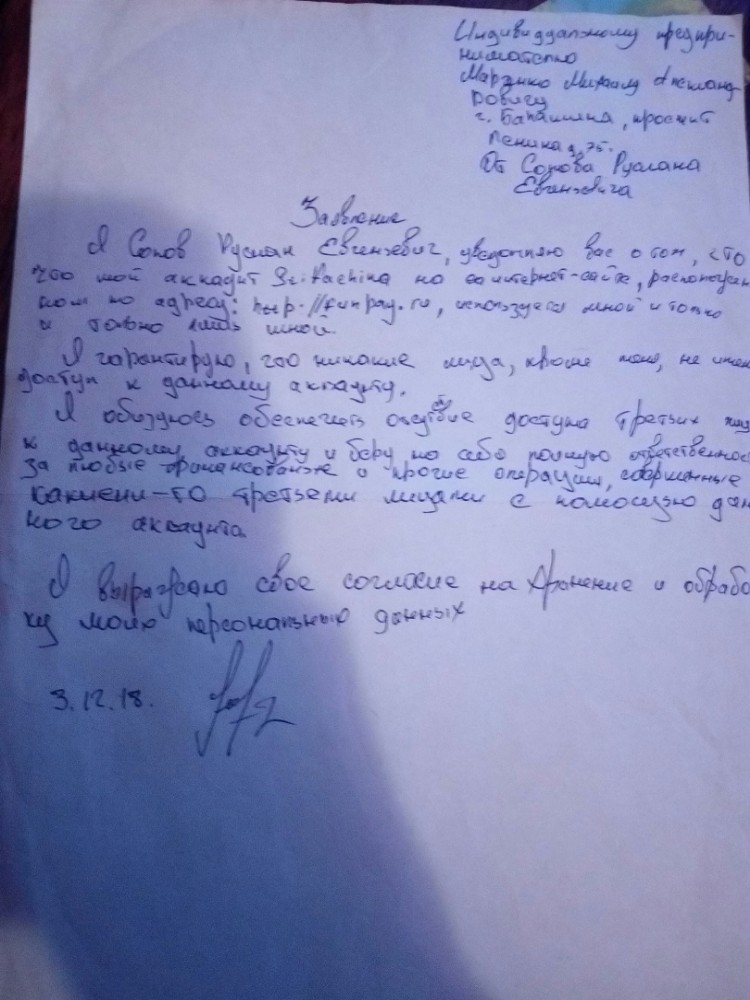 Индивидуальному предпри-
нимателю
Марзнко Михаилу Александ-
ровичу
г. Балашиха, проспект
Ленина д. 75.
От Сопова Руслана
Евгеньевича
Заявление
Я Сопов Руслан Евгеньевич, уведомляю вас о том, что
что мой аккаунт на интернет-сайте, располож
ном по адресу: http://funpay.ru, используется мной и только
и только лишь мной.
Я гарантирую, что никакие лица, кроме меня, не имею
доступ к данному аккаунту.
Я обязуюсь обеспечить отсутствие доступа третьих лиц
к данному аккаунту и беру на себя полную ответственнос
за любые финансовые и прочие операции, совершенные
какими-то третьеми лицами с помощью дан
ного аккаунта.
Я выражаю свое согласие на хранение и обрабо
ку моих персональных данных
3.12.18.